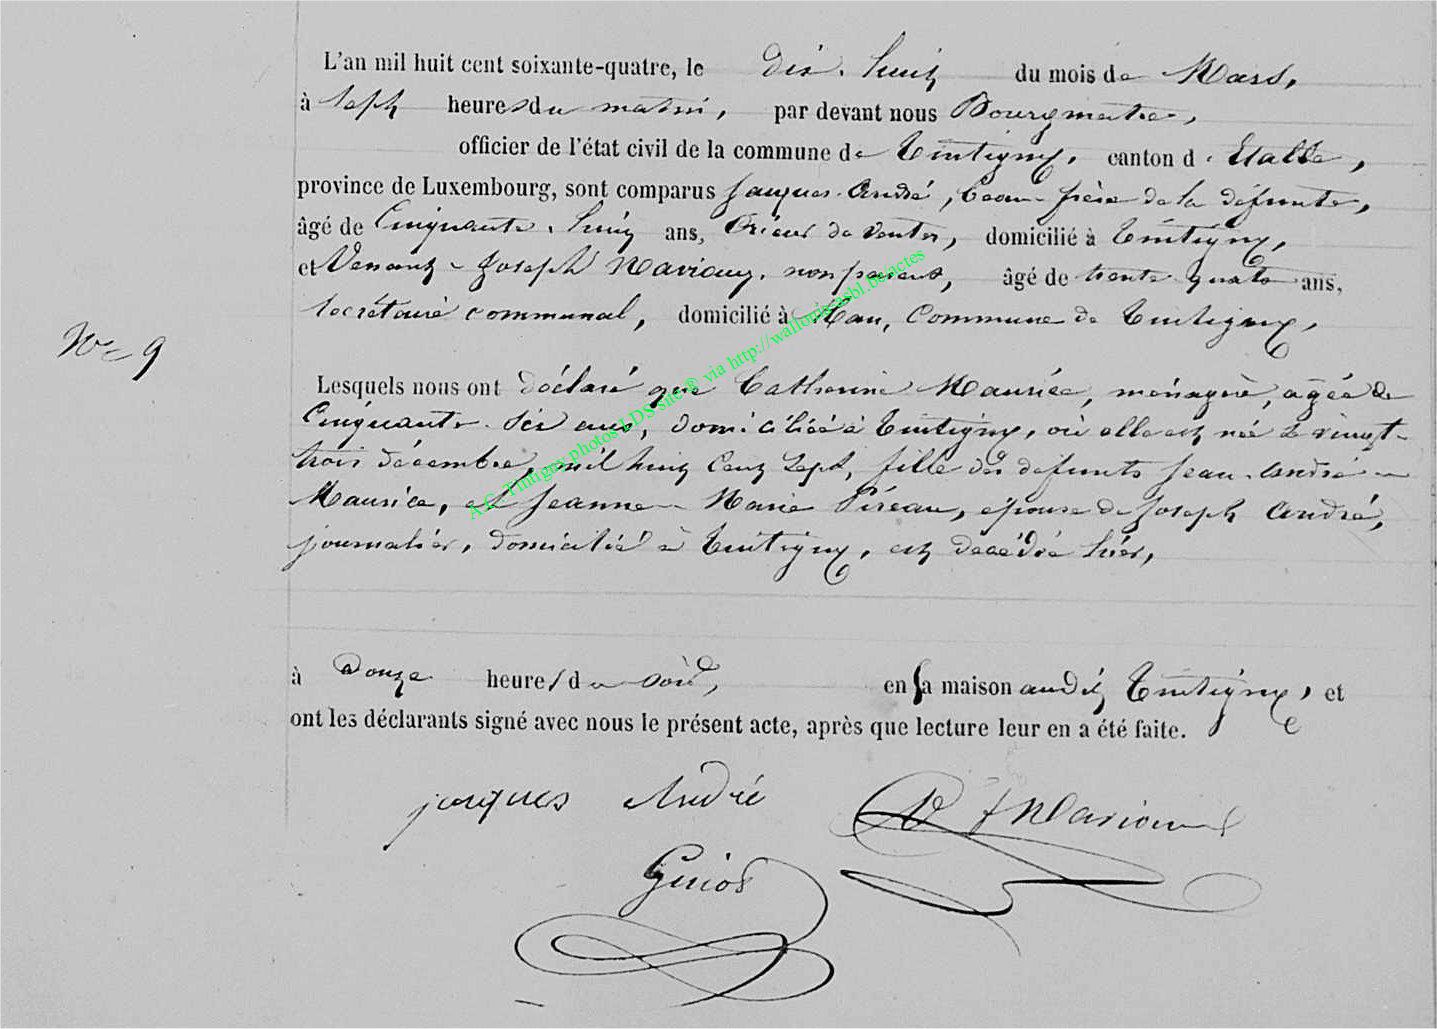 L'an mil huit cent soixante-quatre, le dix-huit du mois de Mars,
à Sept heures du matin, par devant nous Bourgmestre,
officier de l'état civil de la commune de Tintigny, canton d'Etalle,
province de Luxembourg, sont comparus Jacques André, beau-frère de la défunte,
âgé de Cinquante-huit ans, Crieur de ventes, domicilié à Tintigny,
et Venant-Joseph non parent, âgé de trente quatre ans,
Secrétaire communal, domicilié à Han, Commune de Tintigny,
N° 9
Lesquels nous ont déclaré que Catherine Maurice, ménagère, agée de
Cinquante-Six ans, domiciliée à Tintigny, où elle est née le vingt-
trois décembre, mil huit Cent Sept, fille des défunts Jean-André
Maurice, et Jeanne-Marie Pireau, épouse de Joseph André,
journalier, domicilié à Tintigny, est décédée hier,
à Douze heures du soir, en sa maison audit Tintigny, et
ont les déclarants signé avec nous le présent acte, après que lecture leur en a été faite.
jacques André
V J
Guiot
A.C. Tintigny photos LDS site ® via http://wallonia.asbl.be/actes